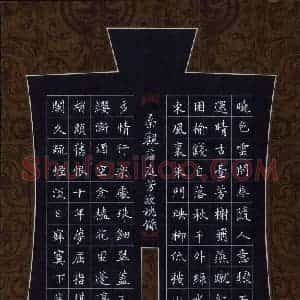 曉色雲開春隨人意
還晴古臺芳榭飛燕蹴
困榆錢自落秋千外綠水
東風裏朱門映柳低按
秦觀滿庭芳
多情行樂處珠鈿翠蓋玉
纓漸酒空金榼花困蓬
頭舊恨十年夢屈指
闌久疏煙淡日寂寞下蕪